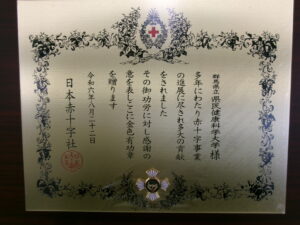 群馬県立県民健康科学大学様
多年にわたり赤十字事業
の進展に尽され多大の貢献
をされました
その御功労に対し感謝の
意を表しここに金色有功章
を贈ります
令和六年八月二十二日
日本赤十字社